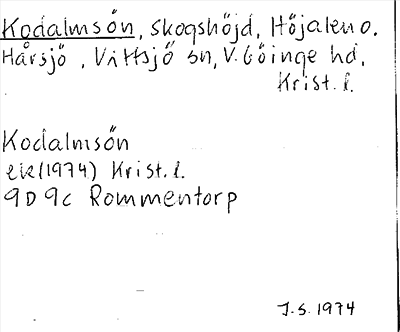 Kodalmsön, skogshöjd, Höjalen o.
Hårsjö, Vittsjö sn, V. Göinge hd,
Krist. l.
Kodalmsön
ek (1974) Krist. l.
9D 9c Rommentorp
J.S. 1974